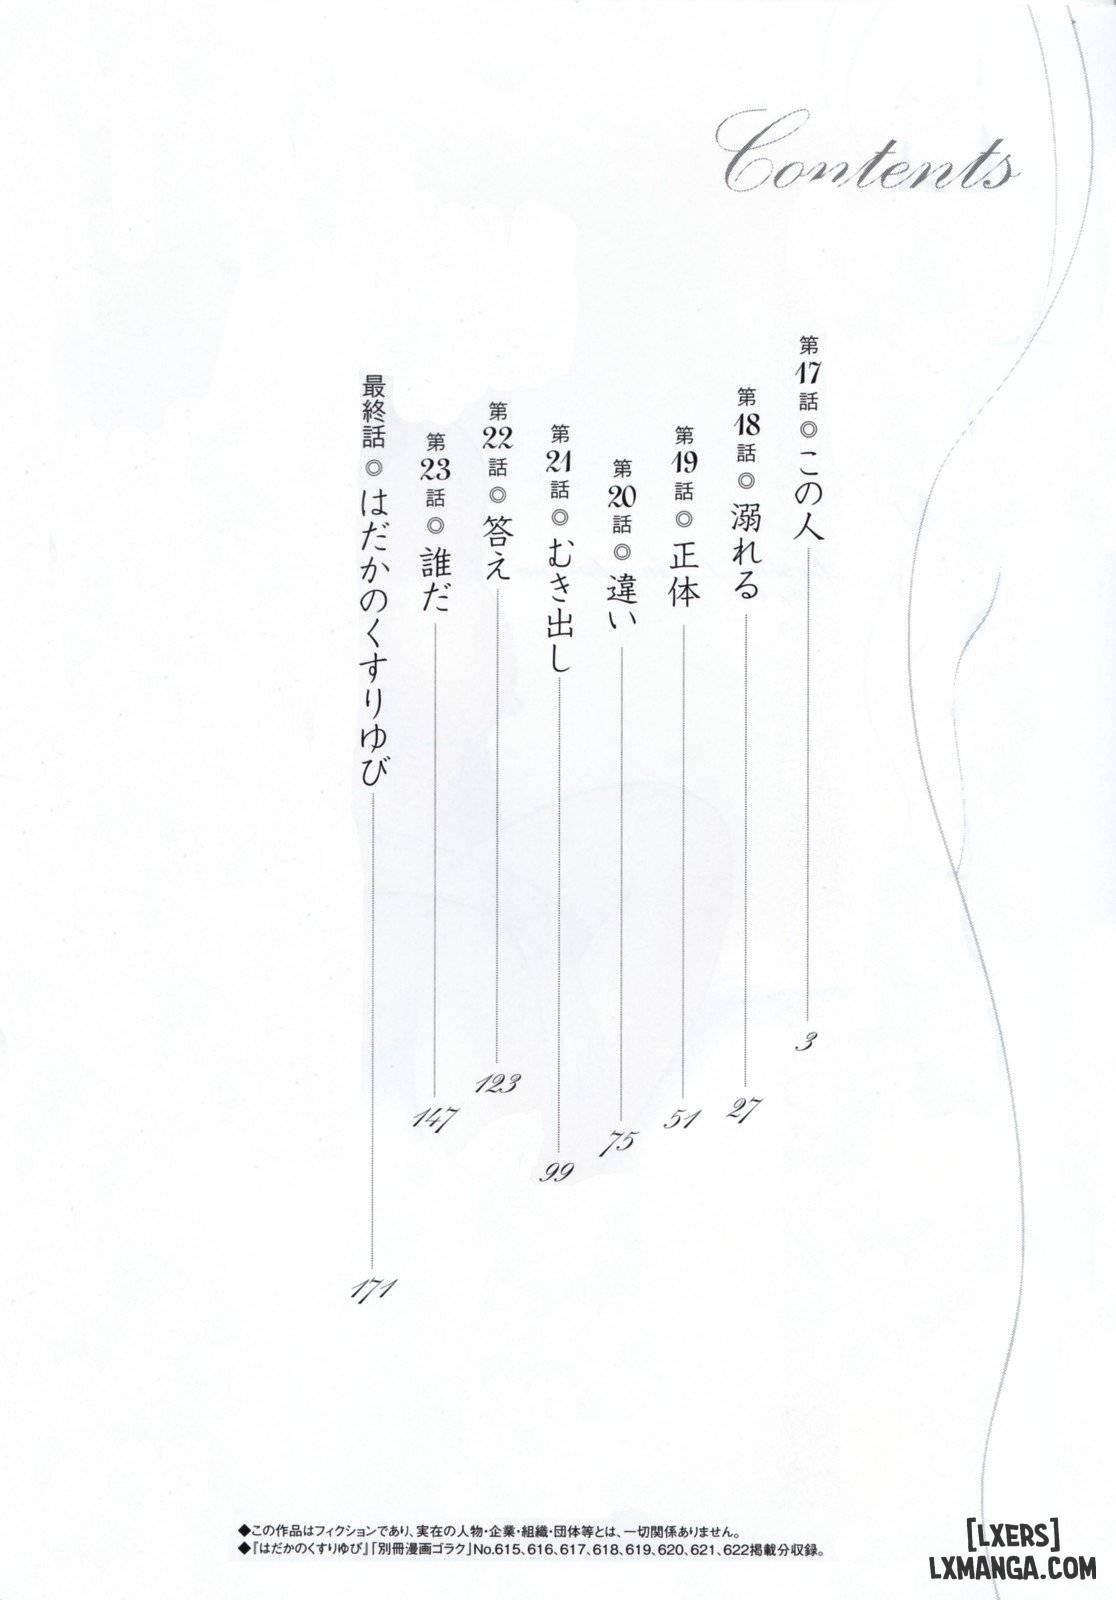 Contents
第17話◎この人 3
第18話◎溺れる 27
第19話◎正体 51
第20話◎違い 75
第21話◎むき出し 99
第22話◎答え 123
第23話◎誰だ 147
最終話◎はだかのくすりゆび 171
◆この作品はフィクションであり、実在の人物・企業・組織・団体等とは、一切関係ありません。
◆『はだかのくすりゆび』「別冊漫画ゴラク」No.615、616、617、618、619、620、621、622掲載分収録。
[LXERS]
LXMANGA.COM